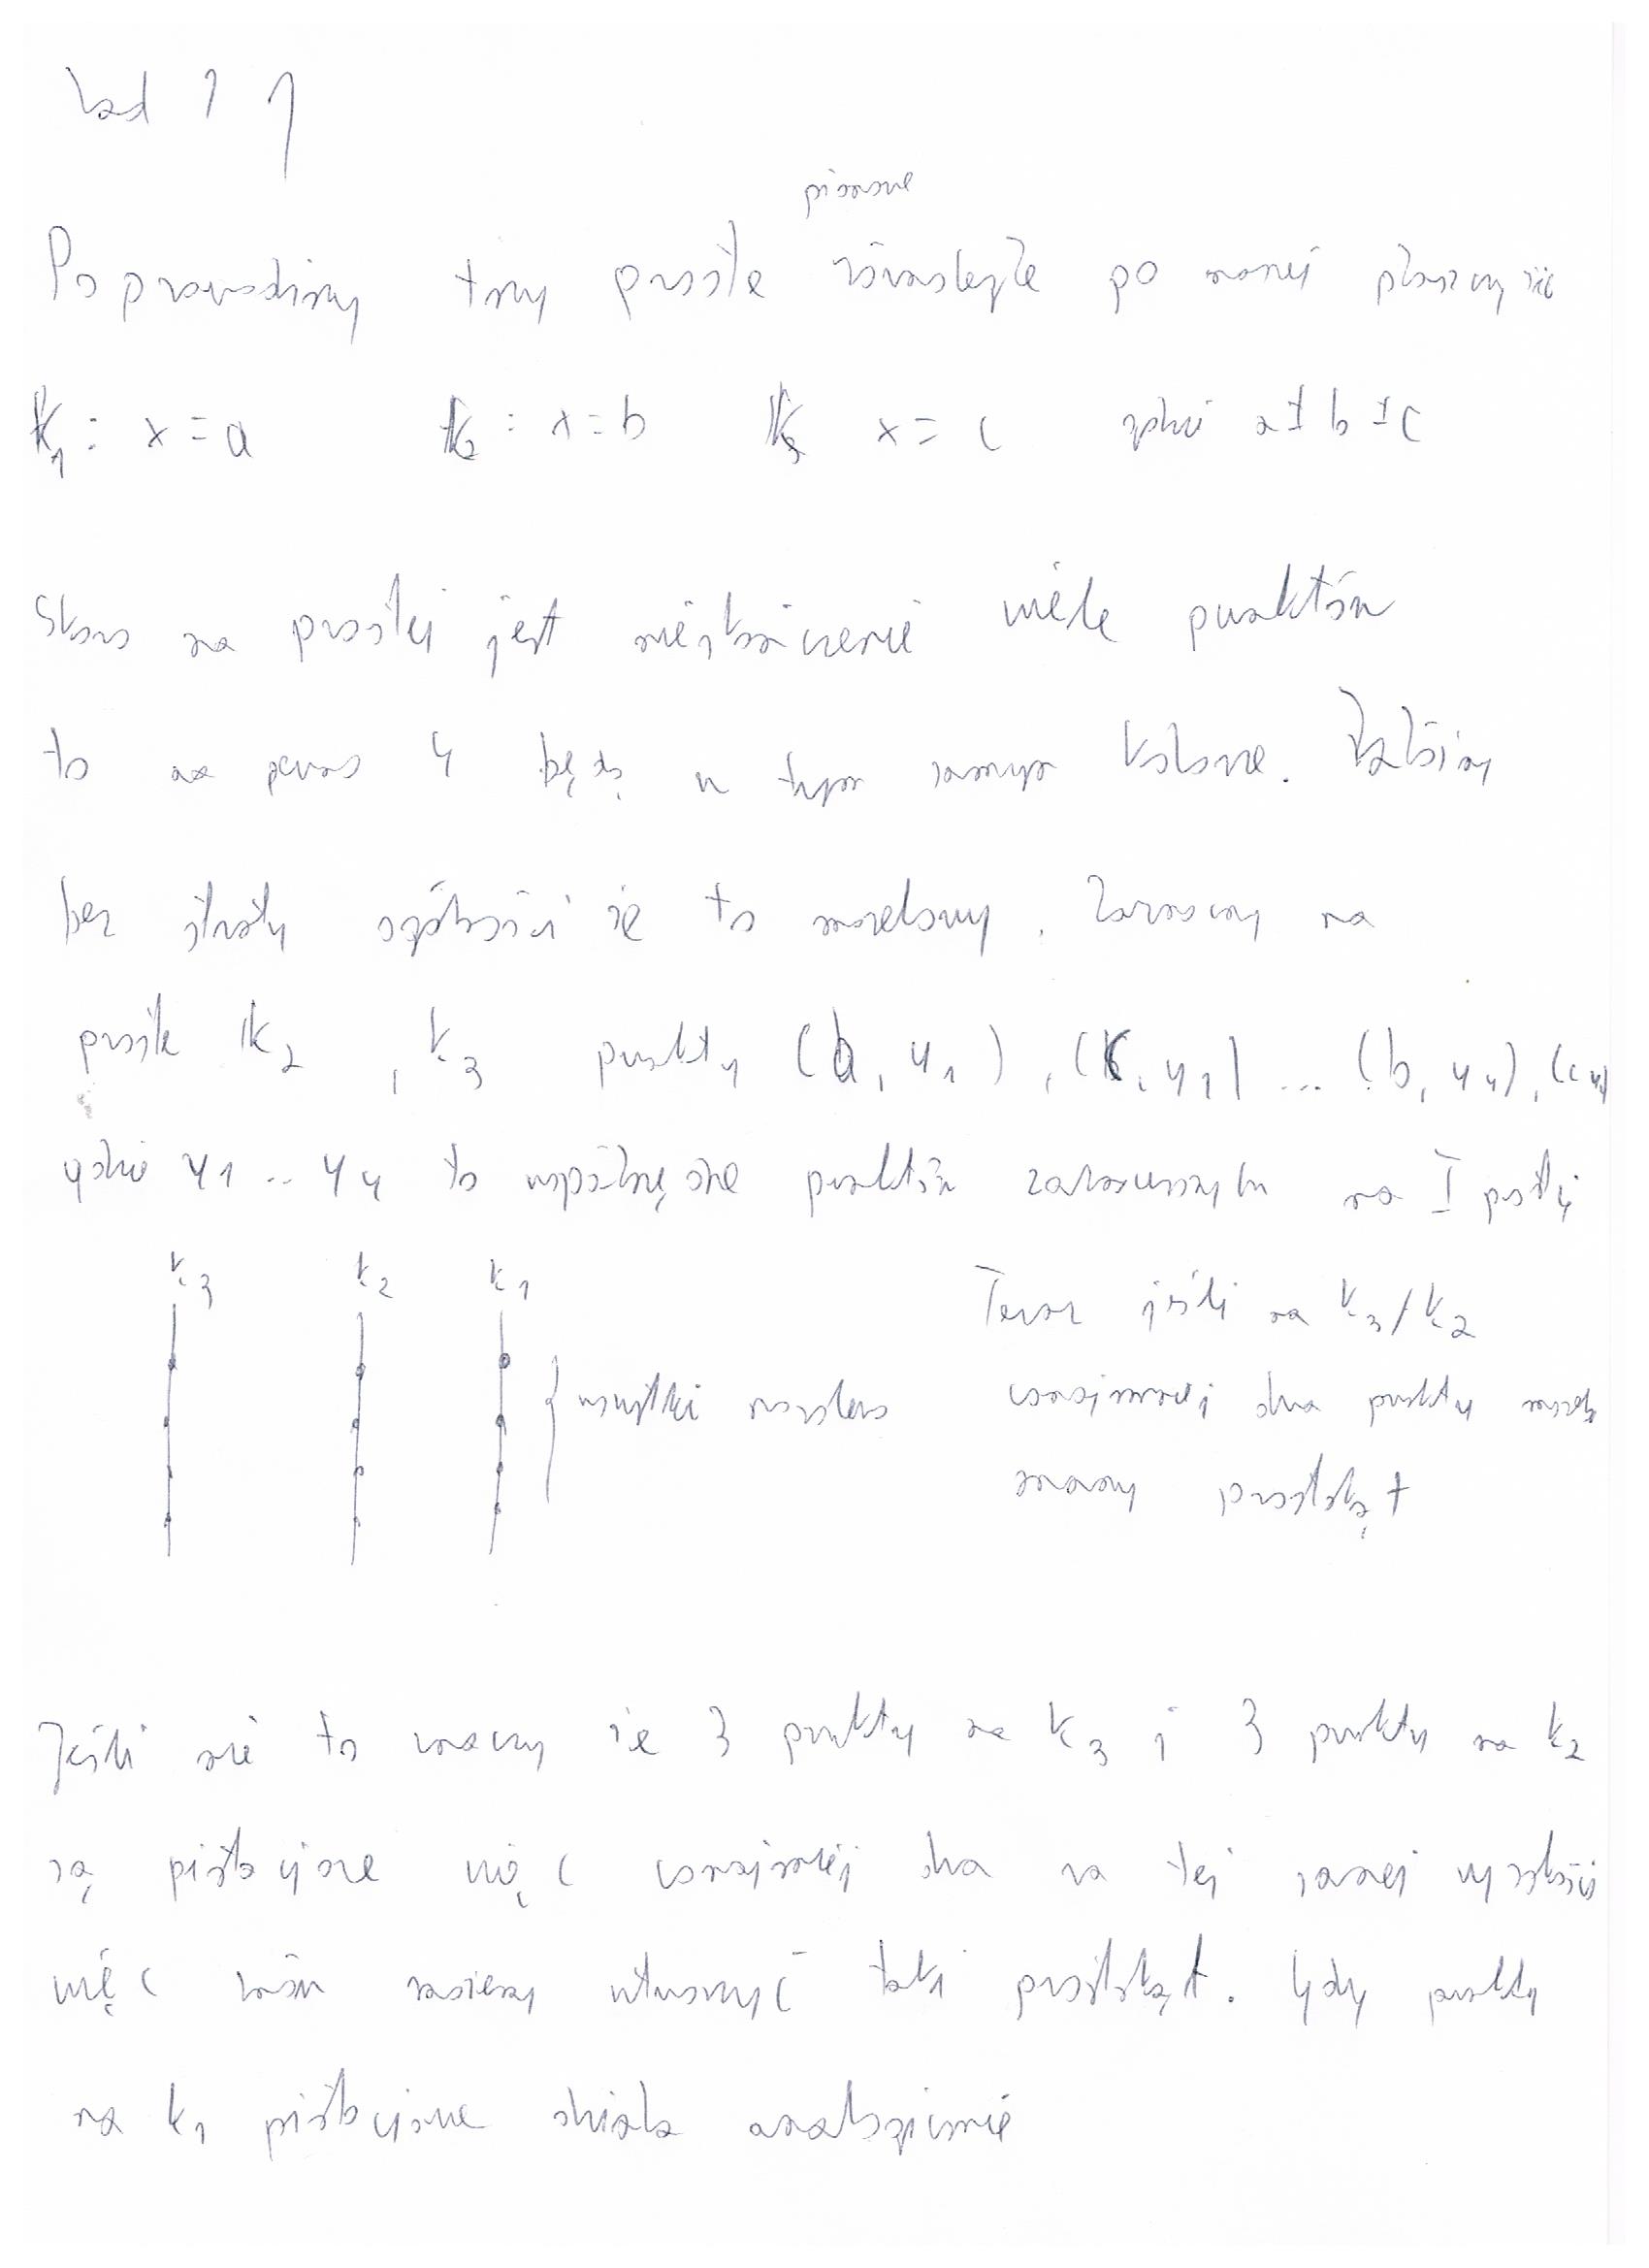 Zad 1 1
pionowe
Poprowadźmy trzy proste równoległe po naszej płaszczyźnie
K₁: x = a K₂: x = b K₃ x = c gdzie a ≠ b ≠ c
Skoro na prostej jest nieskończenie wiele punktów
to na pewno 4 będą w tym samym kolorze. Załóżmy
bez straty ogólności że to morelowy. Zaznaczmy na
proste k₂, k₃ punkty (b, y₁), (c, y₁) ... (b, y₄), (c y₄)
gdzie y₁ .. y₄ to współrzędne punktów zaznaczonych na I prostej
k₃ k₂ k₁
Teraz jeśli na k₃/k₂
wszystkie morelowe
conajmniej dwa punkty morelo
mamy prostokąt
Jeśli nie to znaczy że 3 punkty na k₃ i 3 punkty na k₂
są pistacjowe więc conajmniej dwa na tej samej wysokości
więc znów możemy utworzyć taki prostokąt. Gdy punkty
na k₁ pistacjowe działa analogicznie